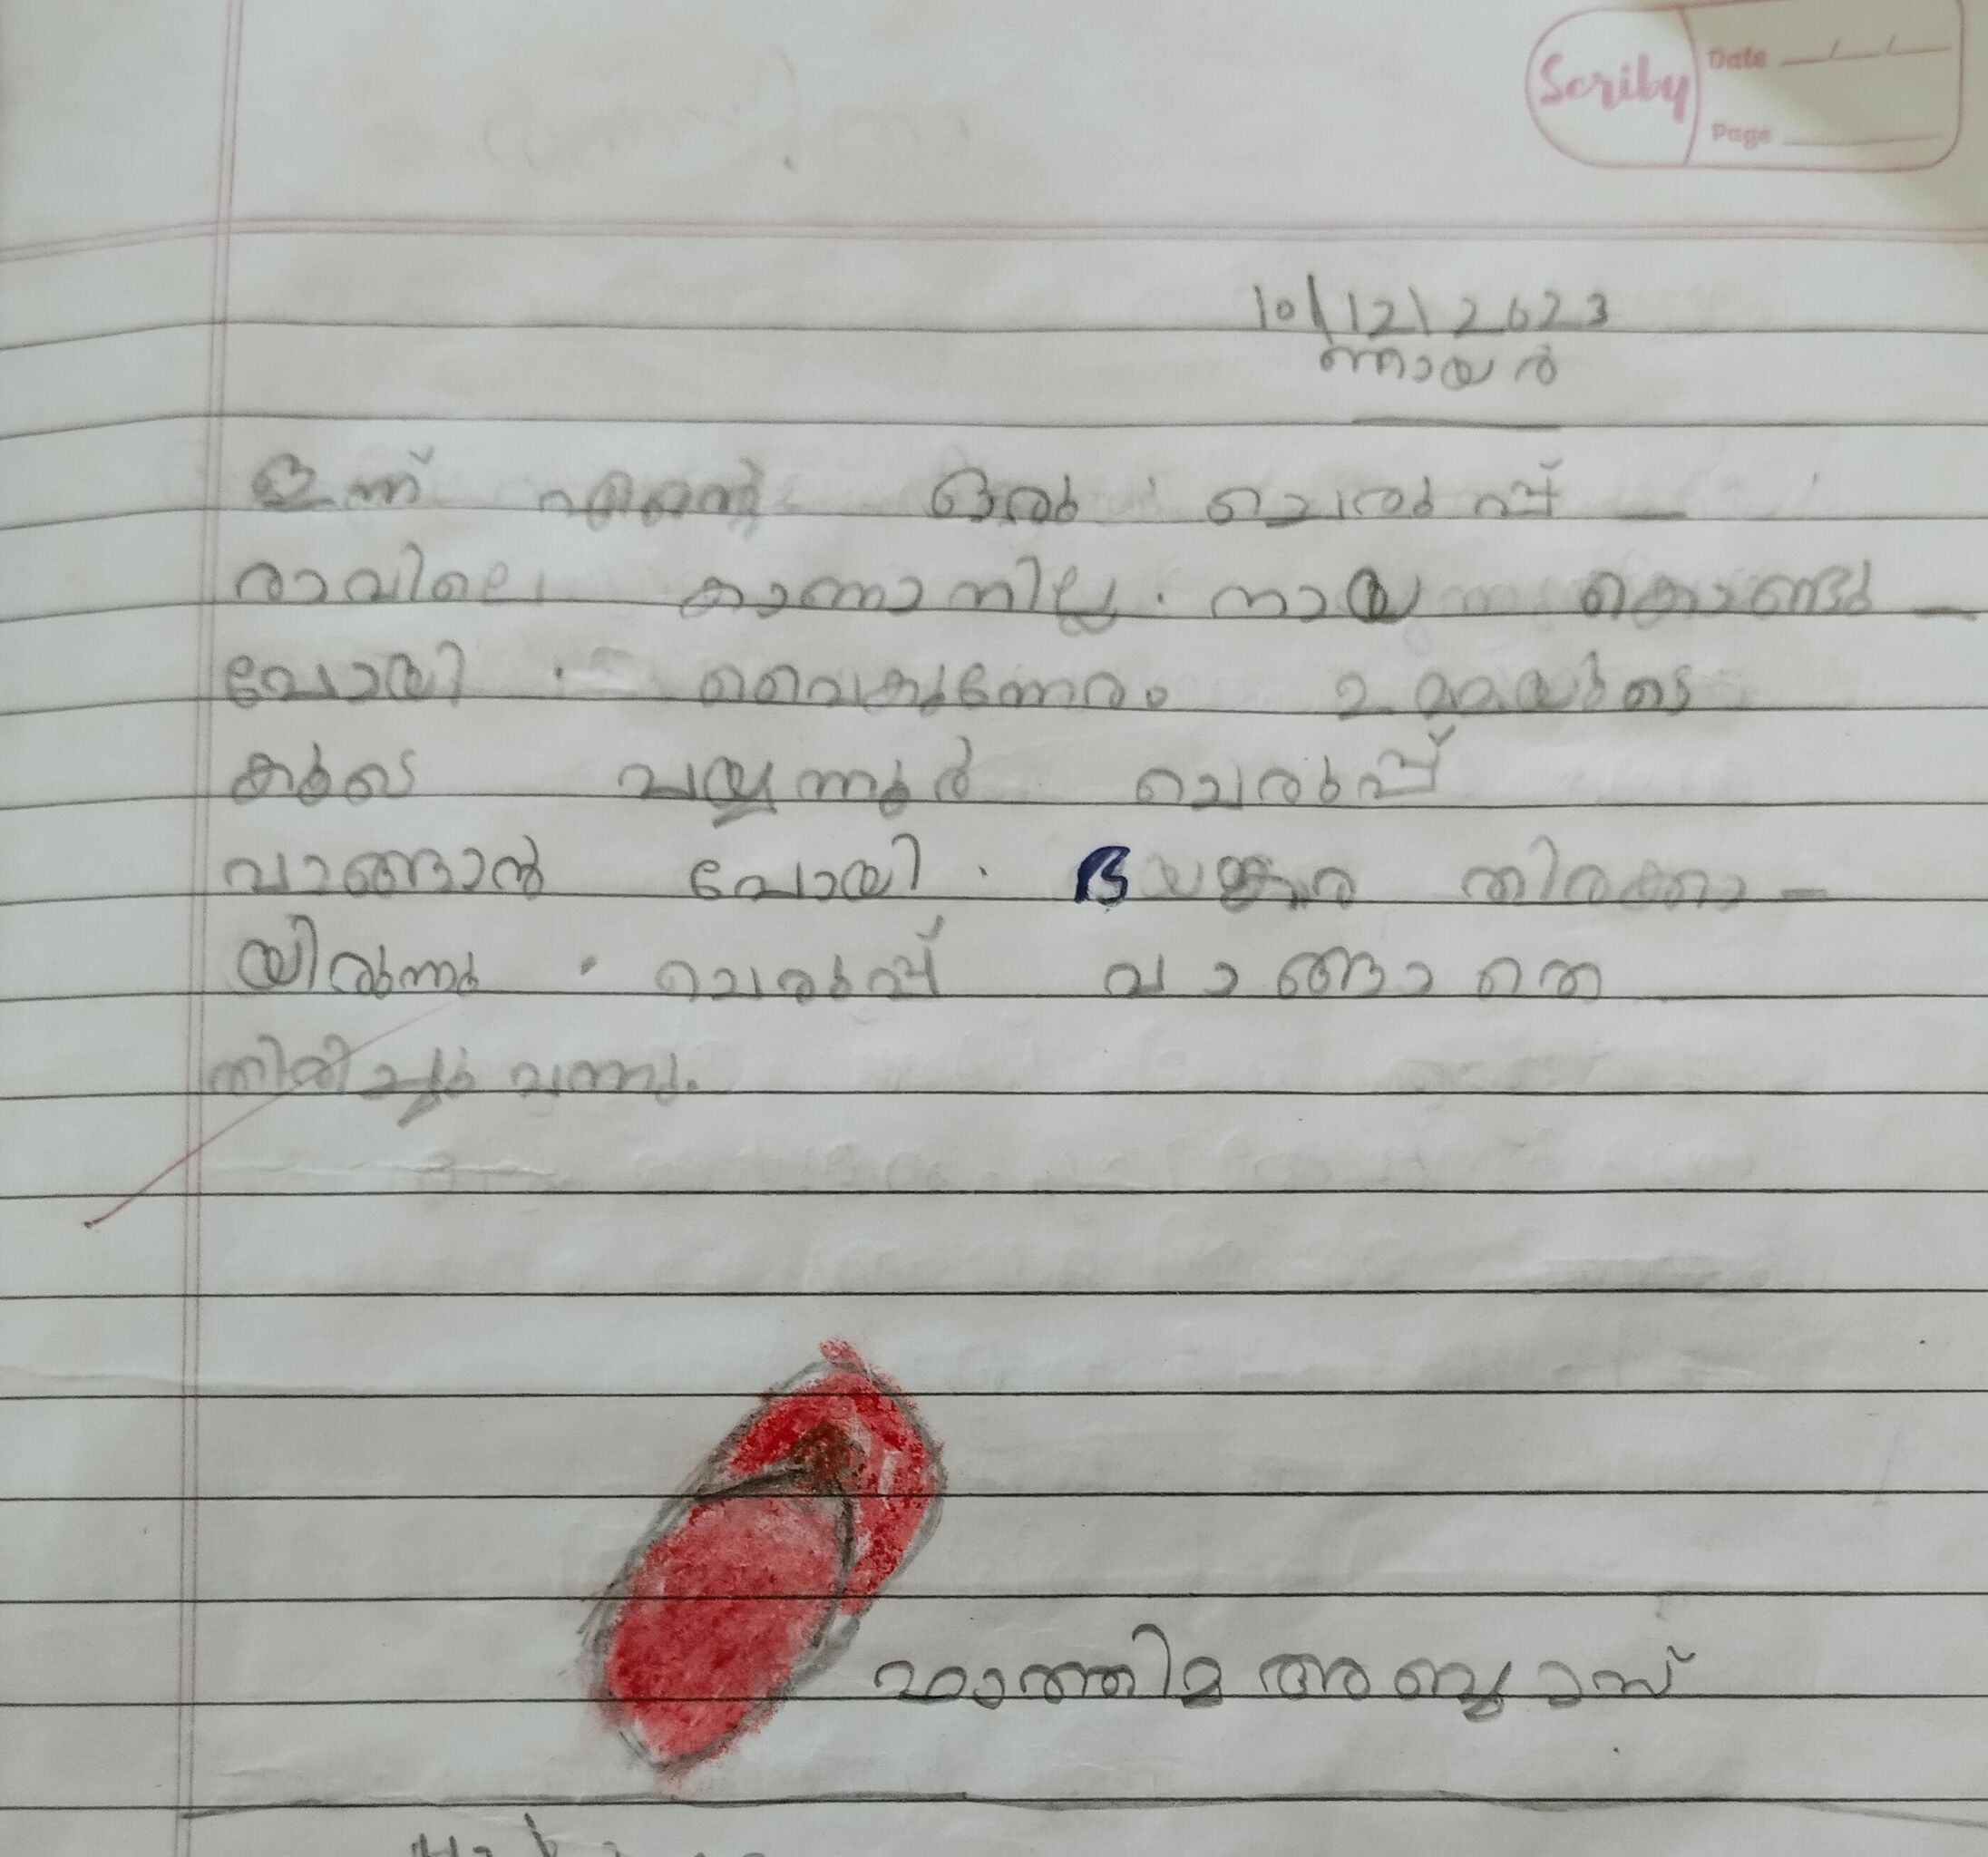 Scriby
Date __/__/__
Page ____
10/12/2023
ഞായർ
ഇന്ന് എന്റെ ഒരു ചെരുപ്പ്
രാവിലെ കാണാനില്ല. നായ കൊണ്ടു
പോയി. വൈകുന്നേരം ഉമ്മയുടെ
കൂടെ പയ്യന്നൂർ ചെരുപ്പ്
വാങ്ങാൻ പോയി. ഭയങ്കര തിരക്കാ
യിരുന്നു. ചെരുപ്പ് വാങ്ങാതെ
തിരിച്ചു വന്നു.
ഫാത്തിമ അബ്ബാസ്